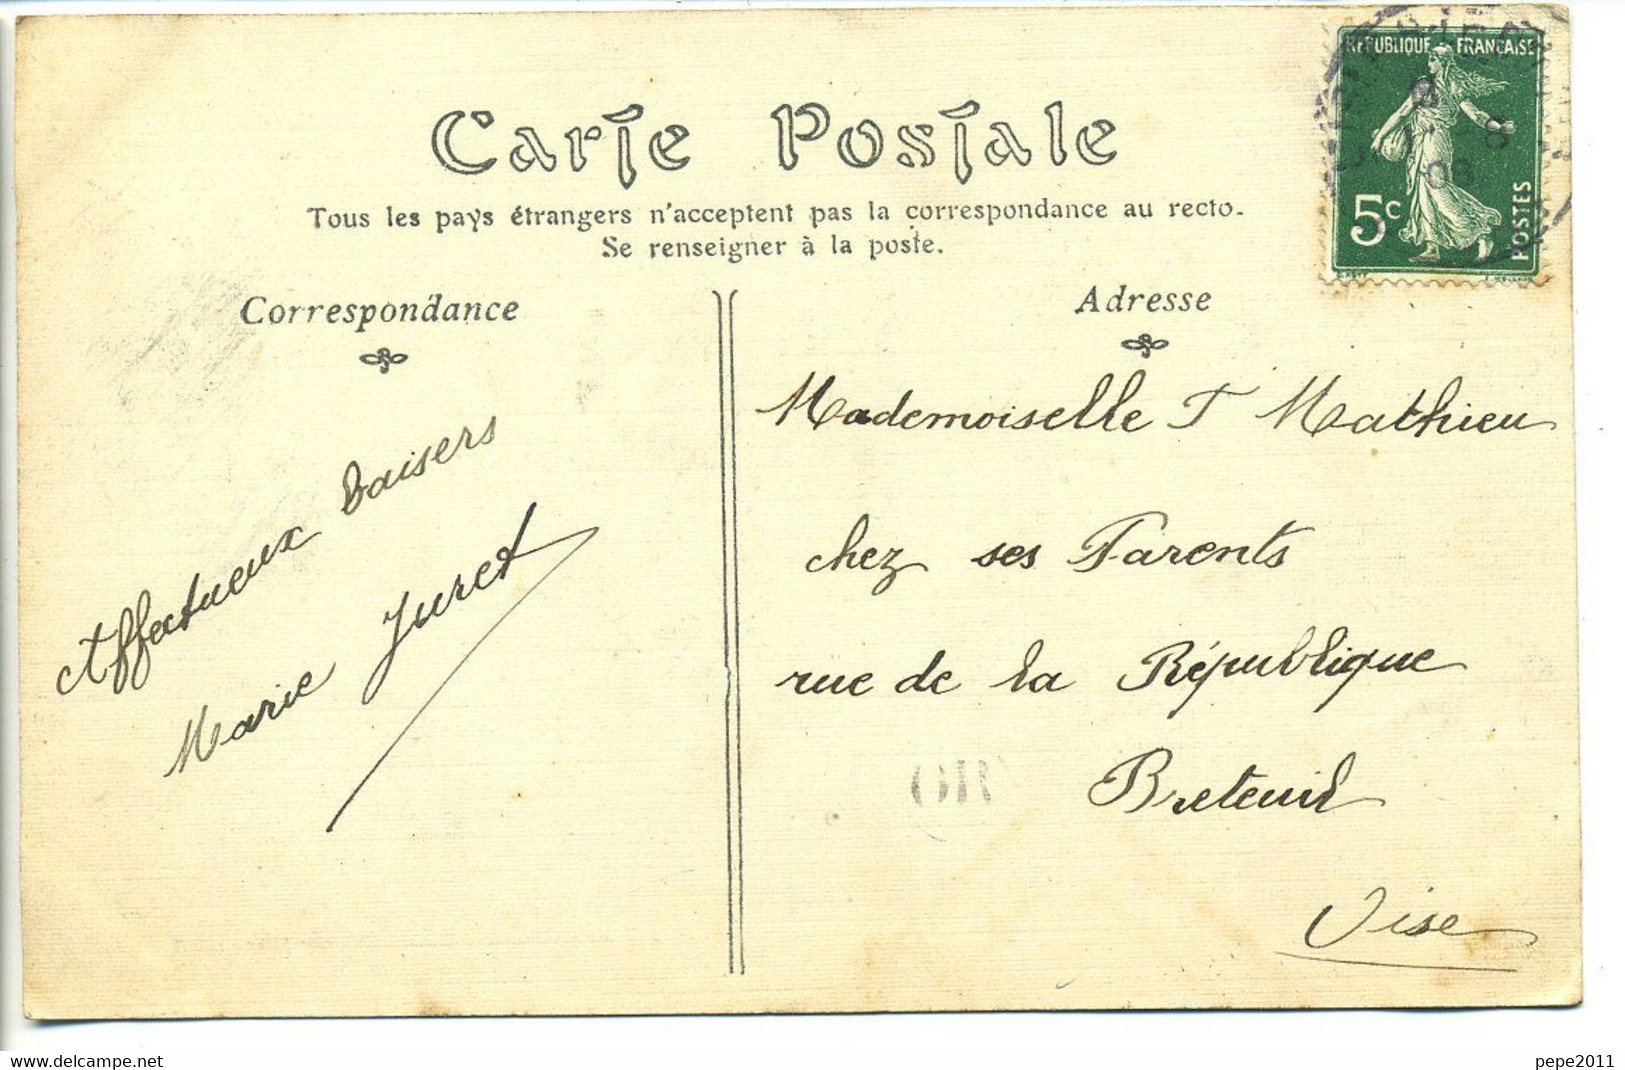 Carte Postale
Tous les pays étrangers n'acceptent pas la correspondance au recto.
Se renseigner à la poste.
Correspondance
Adresse
RÉPUBLIQUE FRANÇAISE
5c
POSTES
08
Affectueux baisers
Marie Juret
Mademoiselle T Mathieu
chez ses Parents
rue de la République
Breteuil
Oise
OR
Click to view more
pepe2011